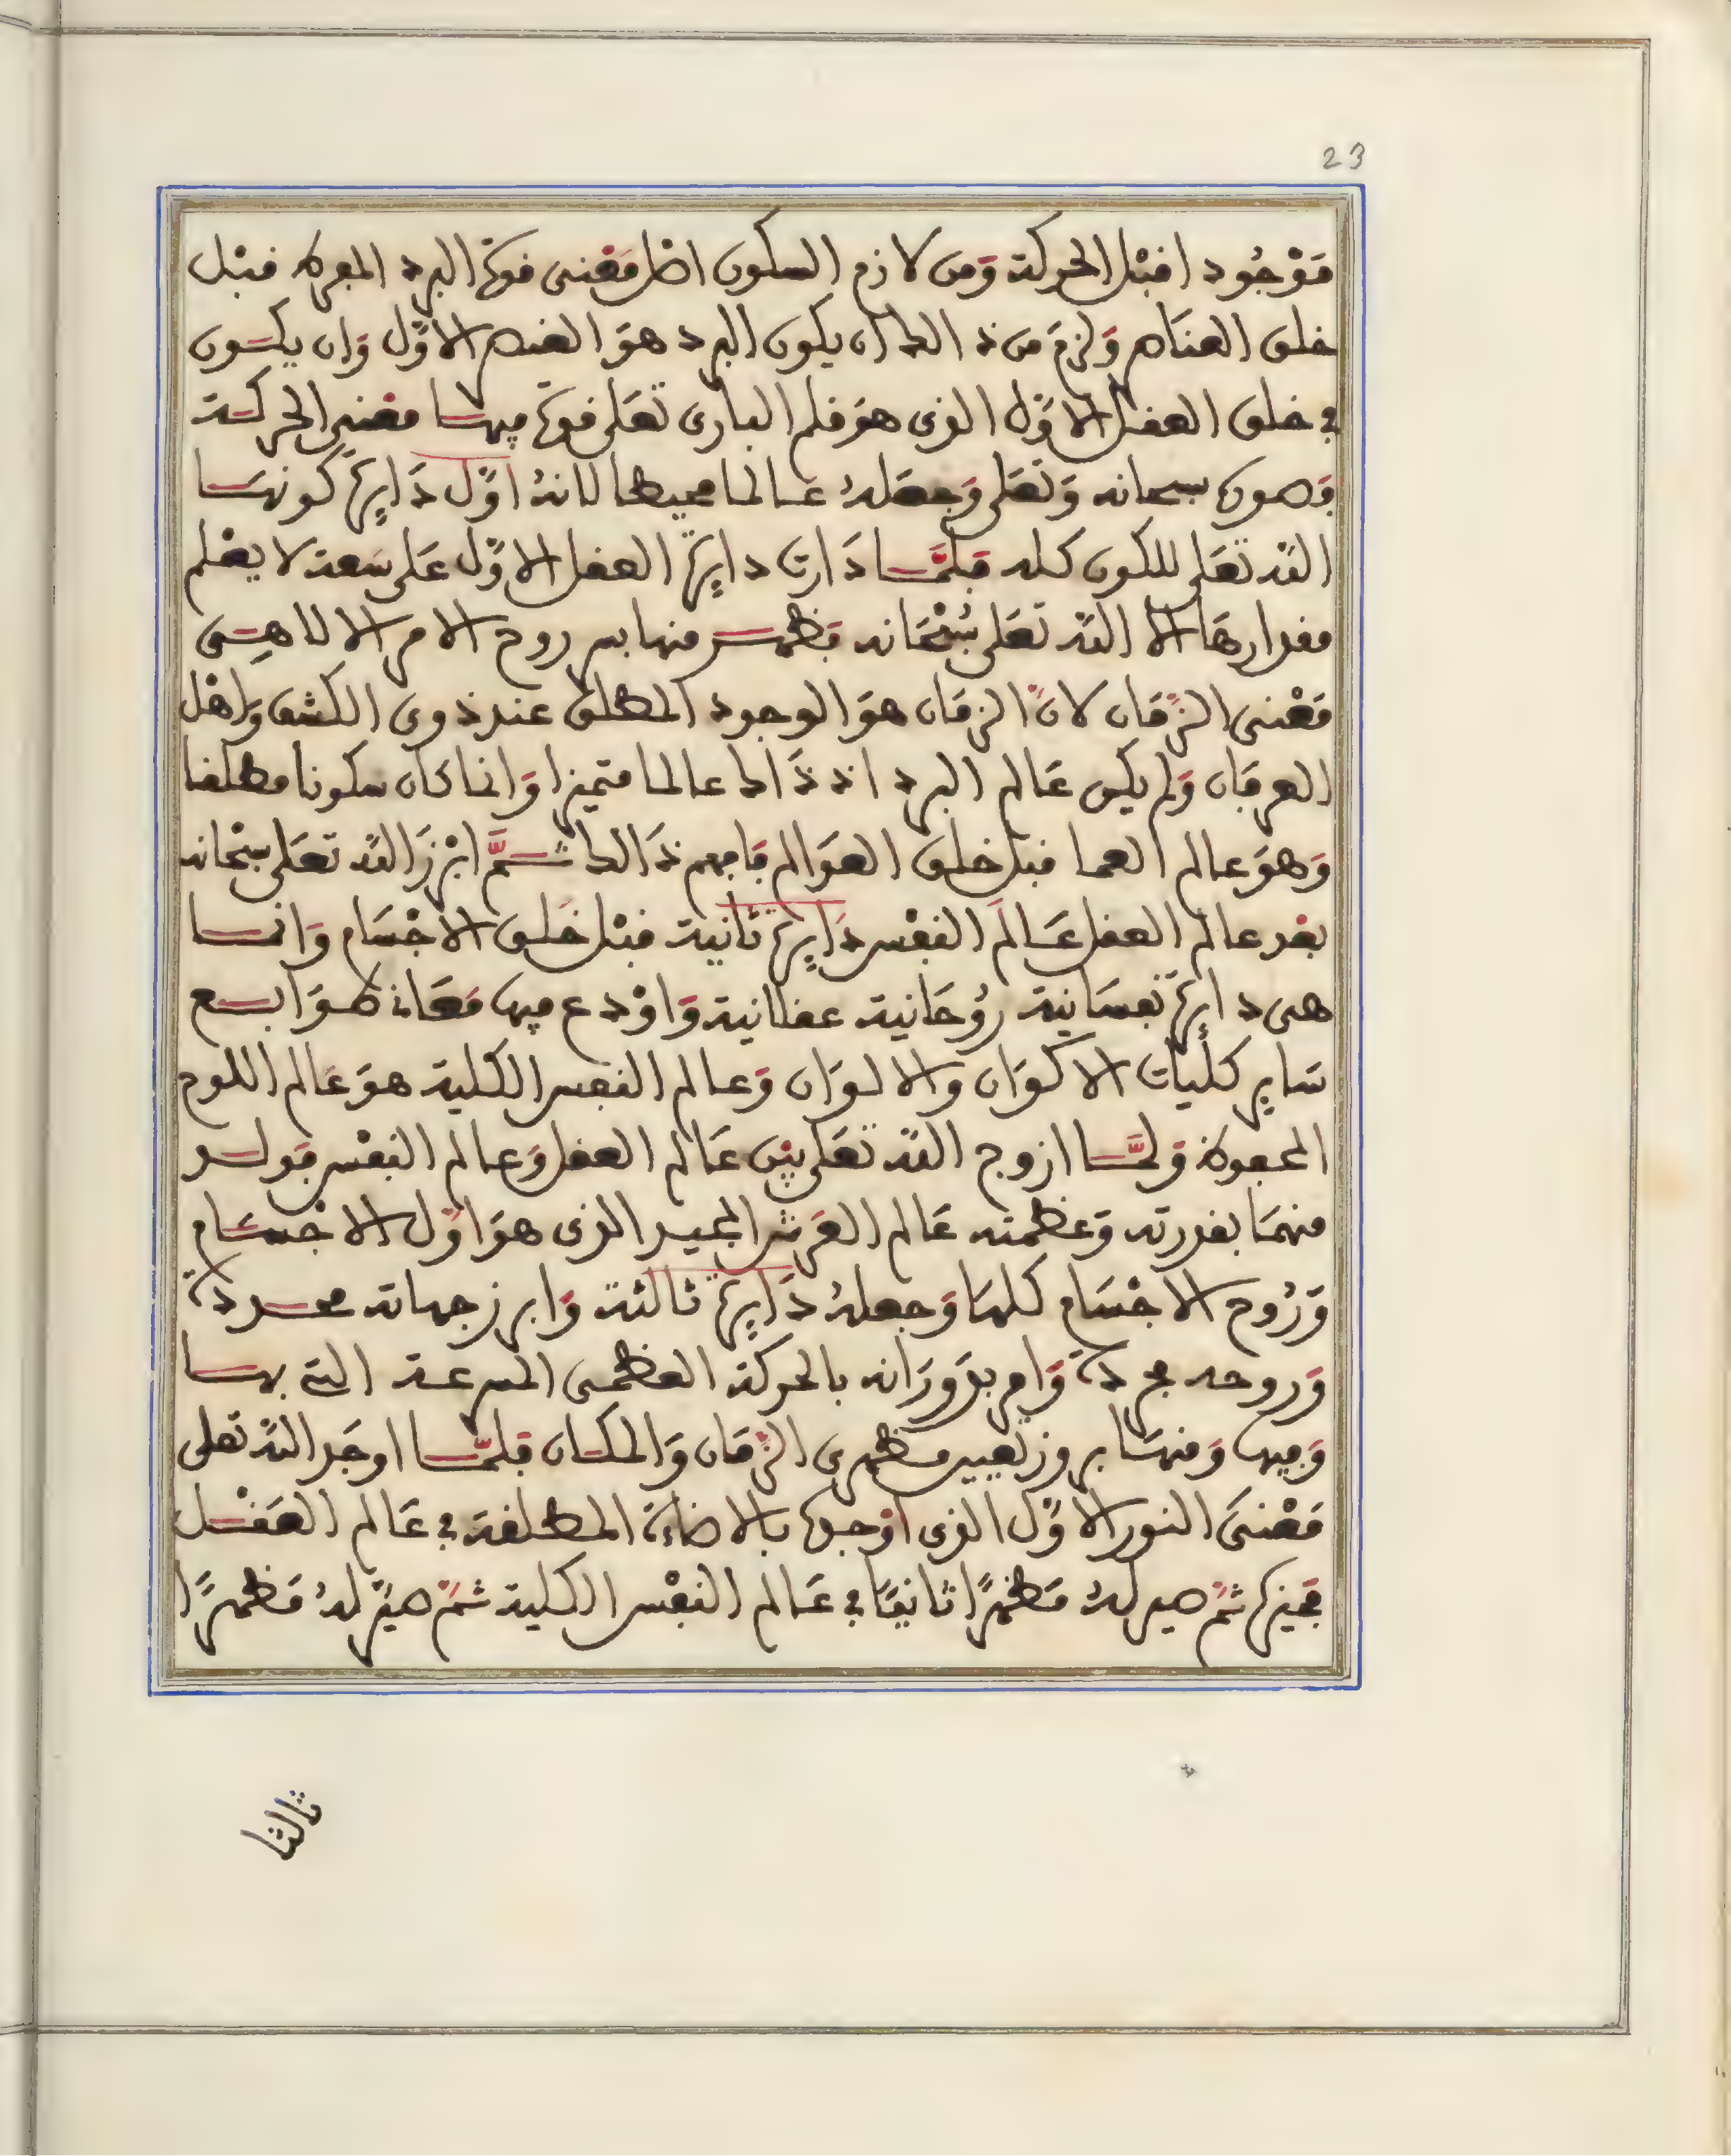 23
مَوْجُود افبْل الحركة وَمن لازم السكون اصل مَعْنى فوة البرد المفرط فبْل
خلق العنَاصر وَلزمَ من ذالك ان يكون البرد هوَ العنصر الاوّل وَان يكون
في خلق العفل الاوّل الذى هوَ فلم البارى تعَلى فوة فيها معْنى الحركة
فصوره سبحانه وَتعَلى وَجعَلهُ عَالما محيطا لانهُ اوّل دَايرة كونهَا
الله تعَلى للكون كله فلمَّا دَارت دايرة العفل الاوّل عَلى سَعة لا يعْلم
مفدارهَا الا الله تعَلى سُبْحَانه فظهر منها سر روح الامر الالاهِى
مَعْنى الزّمَان لانّ الزمَان هوَ الوجود المطلق عند ذوى الكشف وَاهْل
العرفان وَلم يكن عَالم البرد اذ ذَاك عالما متميزا وَانما كان سكونا مطلفا
وَهوَ عالم العما فبل خلق العوَالم فافهم ذَالك ثمَّ ابْرزَ الله تعَلى سبْحانه
بعْد عالم العفل عَالمَ النفْس دَايرة ثانية فبْل خَلق الاجْسَام وَانما
هى دايرة نفسَانية رُوحَانية عفلانية وَاوْدع فيها مَعَانى طوَابع
سَاير كليات الاكوَان والالوَان وَعالم النفس الكلية هوَ عَالم اللوح
المحفوظ وَلمَّا ازوج الله تعَلى بيْن عَالم العفل وَعالم النفْس فولد
منهمَا بفدرته وَعظمته عَالم العَرش المجيد الذى هوَ اوّل الاجْسَام
وَرُوح الاجْسَام كلهَا وَجعلهُ دَايرة ثالثة وَابرز جهاته محددة
وَروحه مجردة وَامر بدَورَانه بالحركة العظمى المسرعة التي بها
وَفيها وَمنهَا بروز تعيين مظهرى الزّمَان وَالمكان فلمّا اوجَد الله تعلى
مَعْنىَ النور الاوّل الذى اوْجدهُ بالاضاءة المطلفة في عَالم العَفْل
فميزه ثمّ صير لهُ مَظهَرًا ثانيًا في عَالم النفْس الكلية ثمّ صيّر لهُ مَظهرًا
ثالثا